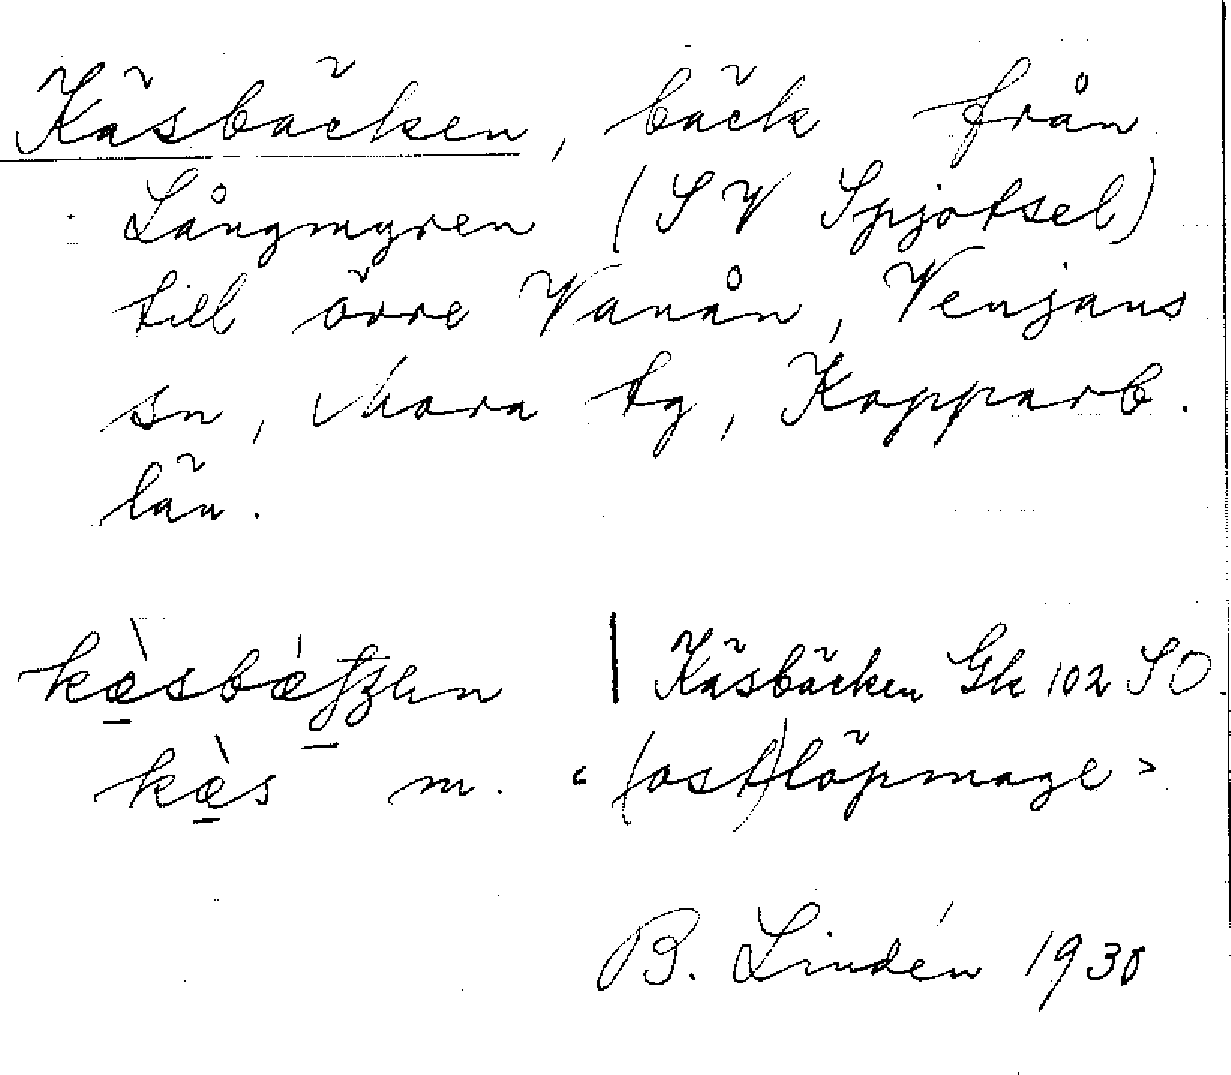 Käsbäcken, bäck från
Långmyren (SV Spjotsel)
till övre Vanån, Venjans
sn, Mora tg, Kopparb.
län.
Käsbäcken Gk 102 SO.
kæ̀s m. "(ost)löpmage"
B. Lindén 1930